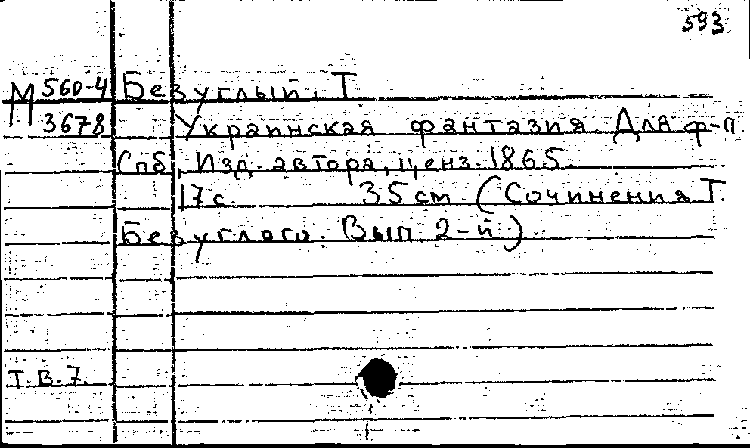 593
М 560-4 Безуглый. Т
3678 Украинская фантазия. Для ф-п
Спб, Изд. автора, ценз. 1865.
17 с. 35 cm (Сочинения Т.
Безуглаго. Вып. 2-й)
Т.В.7.